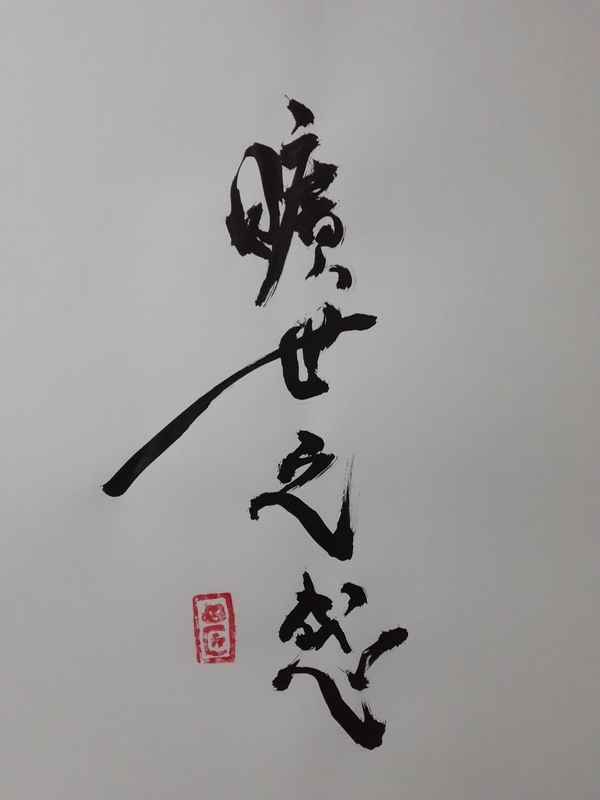 曠世之感